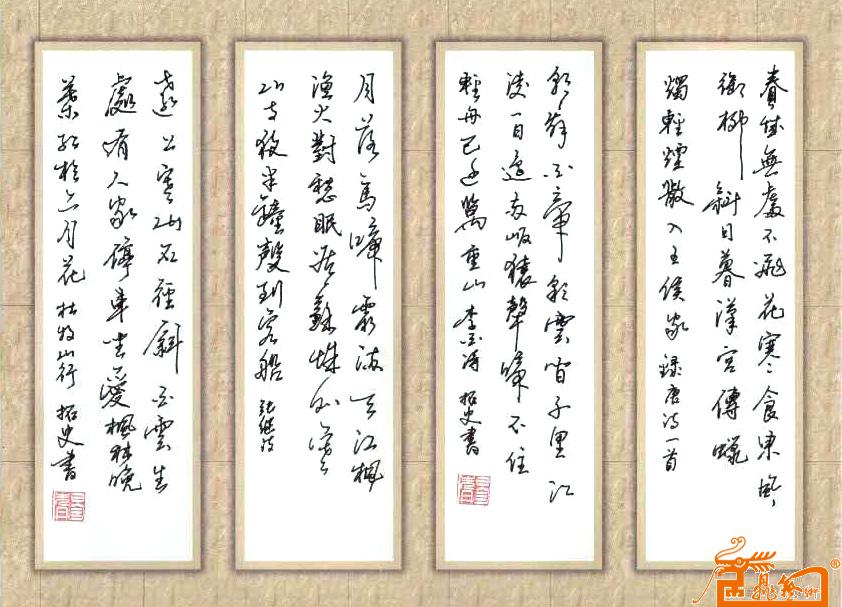 春城無處不飛花寒食東風
御柳斜日暮漢宮傳蠟
燭輕煙散入五侯家 錄唐诗一首
朝辞白帝彩雲间千里江
陵一日還兩岸猿聲啼不住
輕舟已过萬重山 李白詩 拓史書
月落烏啼霜满天江楓
渔火對愁眠姑蘇城外寒
山寺夜半鐘聲到客船 张继诗
遠上寒山石徑斜白雲生
處有人家停車坐愛楓林晚
葉红於二月花 杜牧山行 拓史書